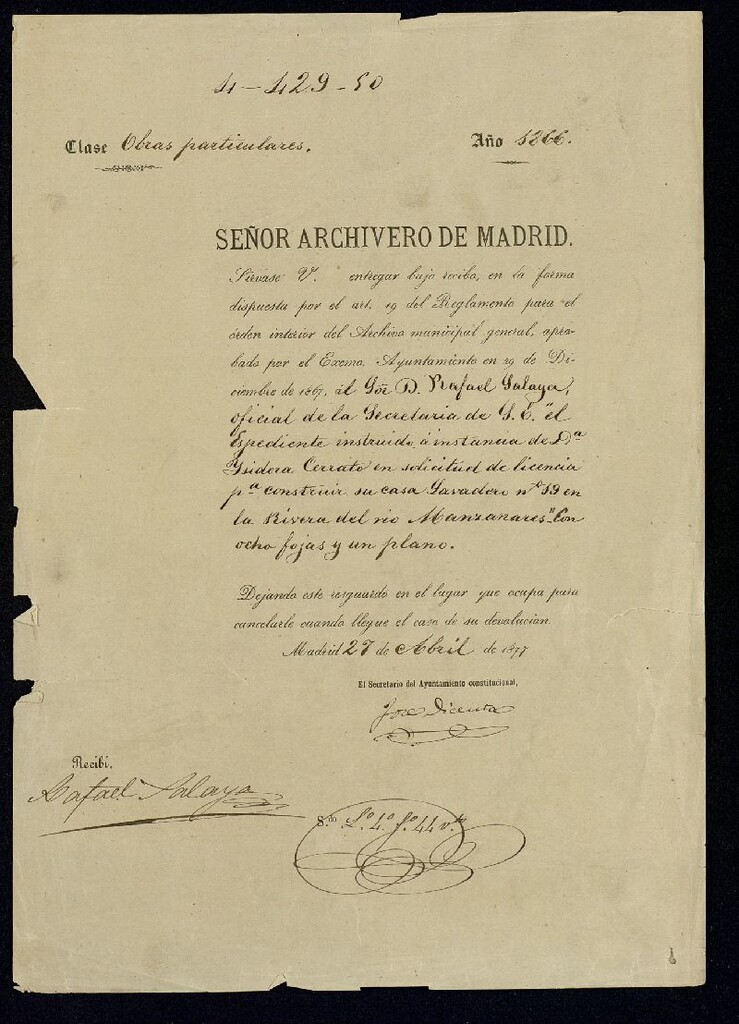 4-429-50
Clase Obras particulares.
Año 1866.
SEÑOR ARCHIVERO DE MADRID.
Sírvase V. entregar bajo recibo, en la forma
dispuesta por el art. 19 del Reglamento para el
órden interior del Archivo municipal general, apro-
bado por el Excmo. Ayuntamiento en 29 de Di-
ciembre de 1867, al Sor. D. Rafael Salaya,
oficial de la Secretaria de S. E. "el
Espediente instruido á instancia de D.ª
Ysidora Cerrato en solicitud de licencia
pª construir su casa Lavadero nº 19 en
la Rivera del rio Manzanares" Con
ocho fojas y un plano.
Dejando este resguardo en el lugar que ocupa para
cancelarle cuando llegue el caso de su devolucion.
Madrid 27 de Abril de 1877
El Secretario del Ayuntamiento constitucional,
José Dicenta
Recibí.
Rafael Salaya
S.do L.o 4.o f.o 44 v.to